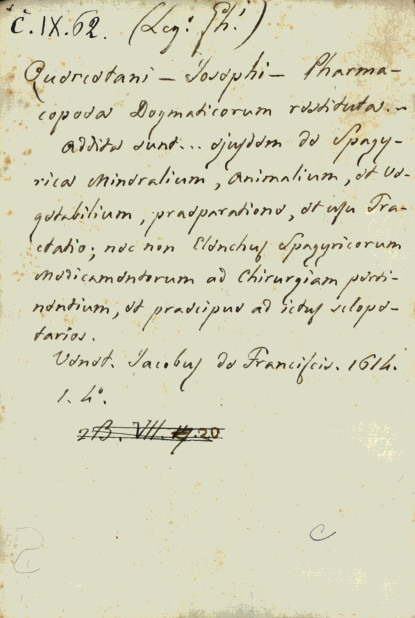 Č. IX. 62. (Leg.e Ph.i)
Quercetani - Iosephi - Pharma-
copoea Dogmaticorum restituta. -
Addita sunt... ejusdem de Spagy-
rica Mineralium, Animalium, et Ve-
getabilium, praeparatione, et usu Tra-
ctatio; nec non Elenchus Spagyricorum
Medicamentorum ad Chirurgiam perti-
nentium, et praecipue ad ictus sclope-
tarios.
Venet. Jacobus de Franciscis. 1614.
1. 4.o
2B. VII. 19.20
C